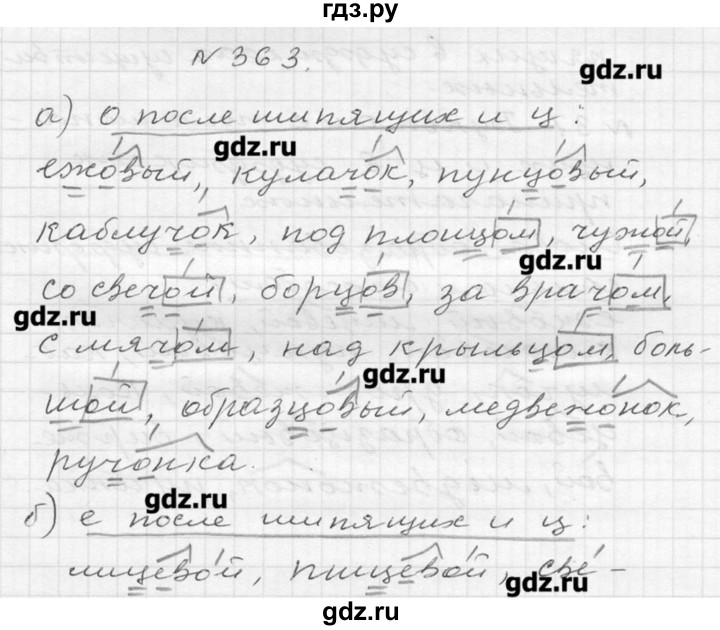 гдз.ру
№363.
gdz.ru
а) о после шипящих и ц:
gdz.ru
ежовый, кулачок, пунцовый,
каблучок, под плащом, чужой,
gdz.ru
со свечой, борцов, за врачом,
gdz.ru
с мячом, над крыльцом, боль-
gdz.ru
шой, образцовый, медвежонок,
ручонка.
gdz.ru
б) е после шипящих и ц:
лицевой, пищевой, све-
gdz.ru
gdz.ru